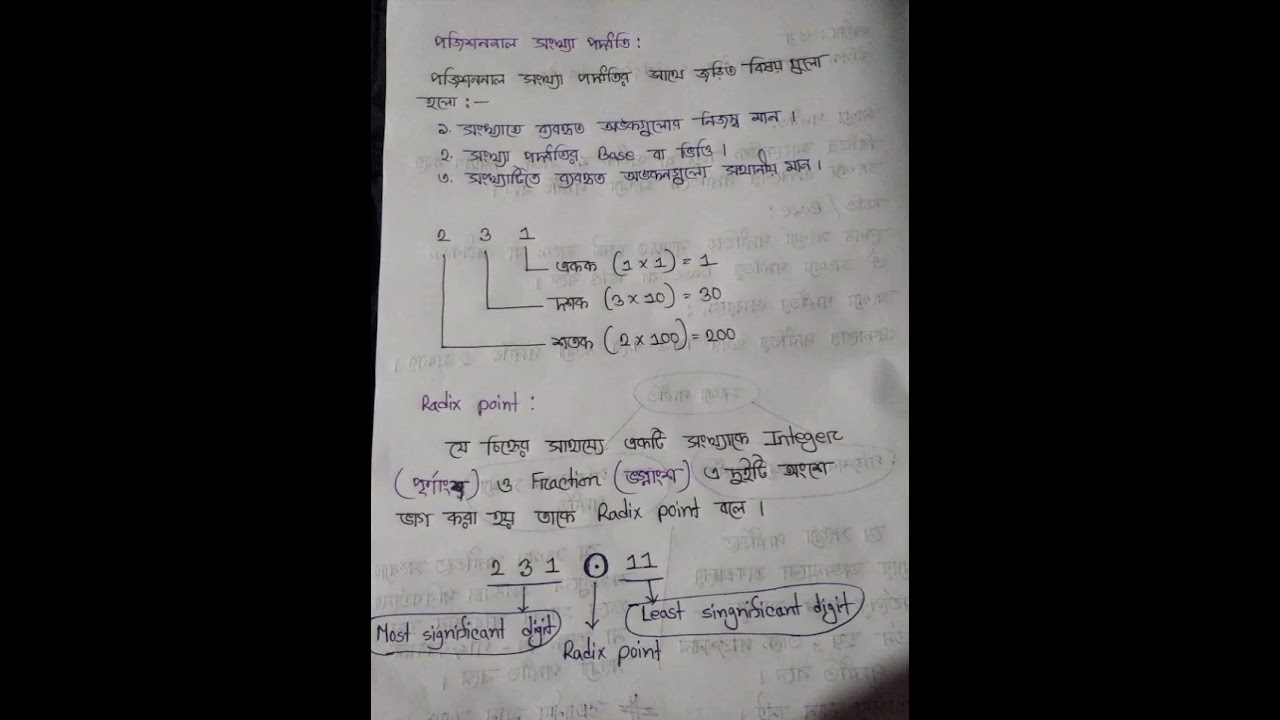 পজিশনাল সংখ্যা পদ্ধতি :
পজিশনাল সংখ্যা পদ্ধতির সাথে জড়িত বিষয় গুলো
হলো :—
১. সংখ্যাতে ব্যবহৃত অঙ্কগুলোর নিজস্ব মান ।
২. সংখ্যা পদ্ধতির Base বা ভিত্তি ।
৩. সংখ্যাটিতে ব্যবহৃত অঙ্কগুলো স্থানীয় মান ।
2 3 1
একক (1 x 1) = 1
দশক (3 x 10) = 30
শতক (2 x 100) = 200
Radix point :
যে চিহ্নের সাহায্যে একটি সংখ্যাকে Integer
(পূর্ণাংশ) ও Fraction (ভগ্নাংশ) এ দুইটি অংশে
ভাগ করা হয় তাকে Radix point বলে ।
2 3 1 . 11
Most significant digit
Least singnificant digit
Radix point